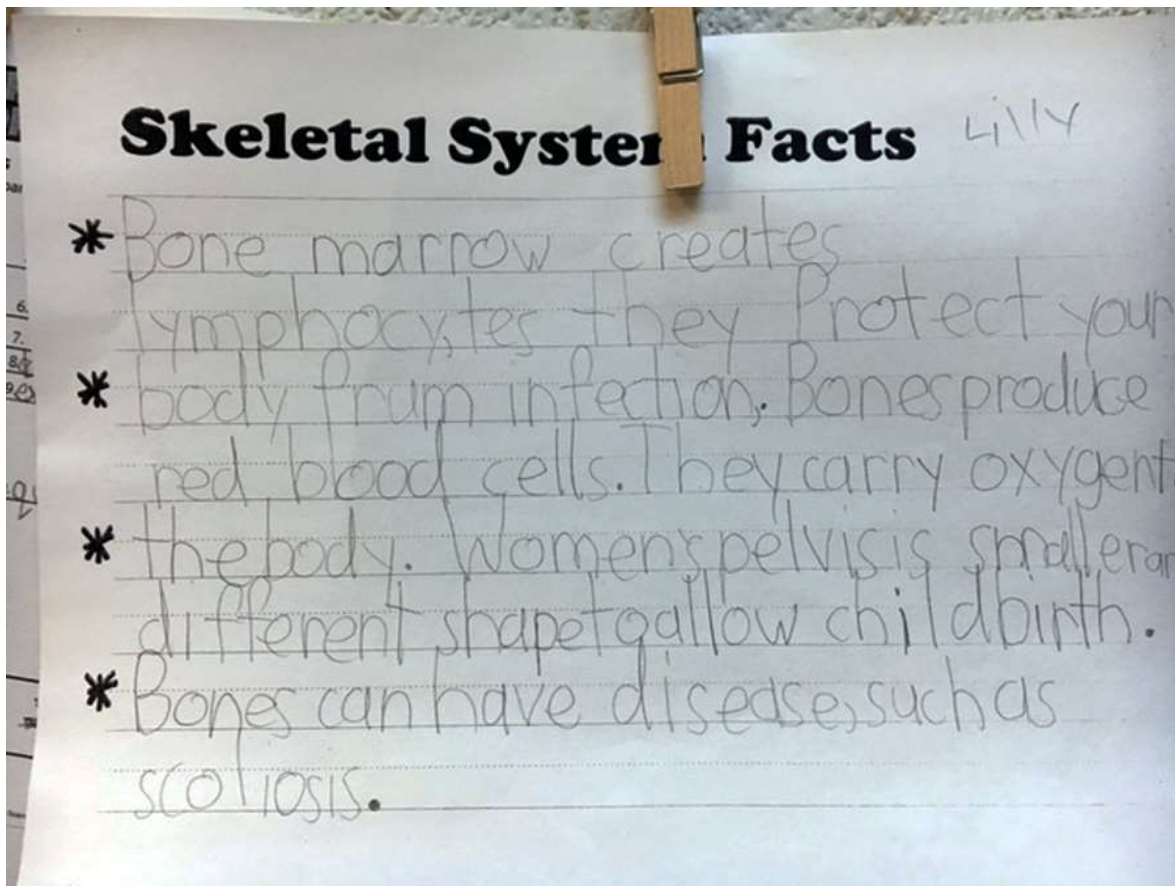 Skeletal System Facts Lilly
* Bone marrow creates
lymphocytes they Protect your
* body frum infection. Bones produce
red blood cells. They carry oxygen t
* the body. Women's pelvis is smaller an
different shape to allow child birth.
* Bones can have disease, such as
scoliosis.
6.
7.